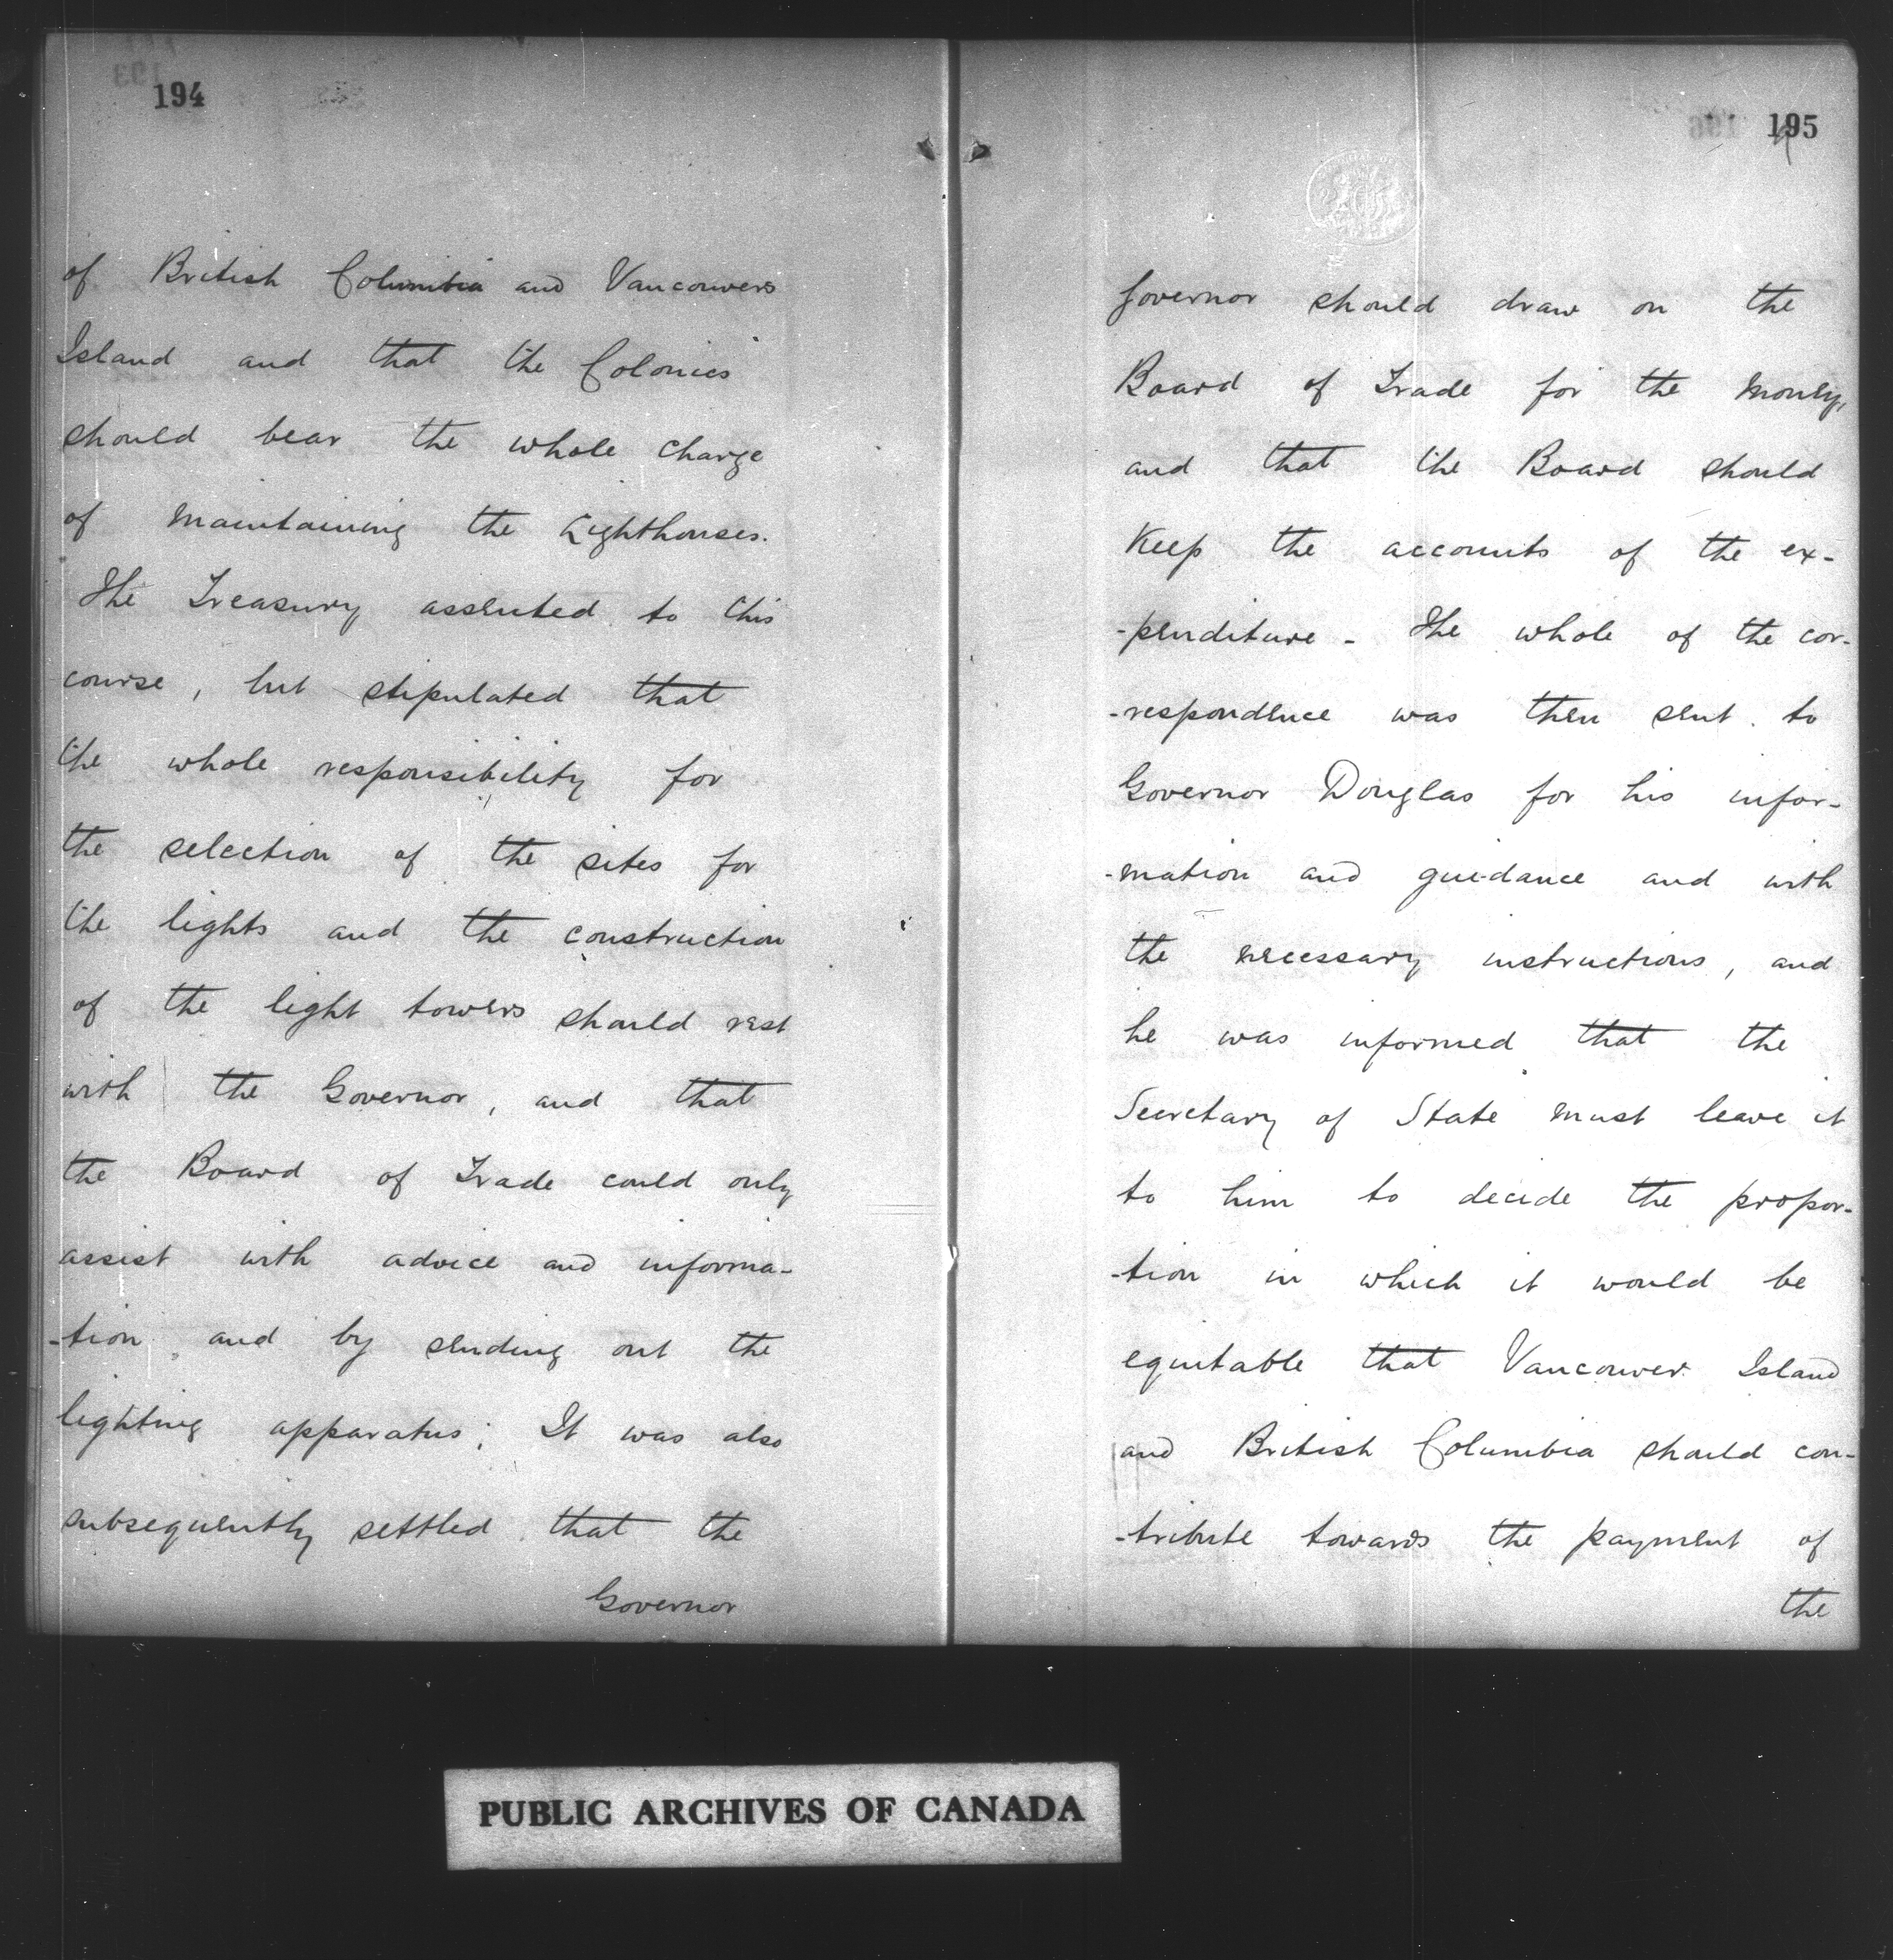 194
of British Columbia and Vancouvers
Island and that the Colonies
should bear the whole charge
of maintaining the Lighthouses.
The Treasury assented to this
course, but stipulated that
the whole responsibility for
the selection of the sites for
the lights and the construction
of the light towers should rest
with the Governor, and that
the Board of Trade could only
assist with advice and informa-
-tion, and by sending out the
lighting apparatus; It was also
subsequently settled that the
Governor
195
Governor should draw on the
Board of Trade for the money,
and that the Board should
Keep the accounts of the ex-
-penditure - The whole of the cor-
-respondence was then sent to
Governor Douglas for his infor-
-mation and guidance and with
the necessary instructions, and
he was informed that the
Secretary of State must leave it
to him to decide the propor-
-tion in which it would be
equitable that Vancouver Island
and British Columbia should con-
-tribute towards the payment of
the
PUBLIC ARCHIVES OF CANADA